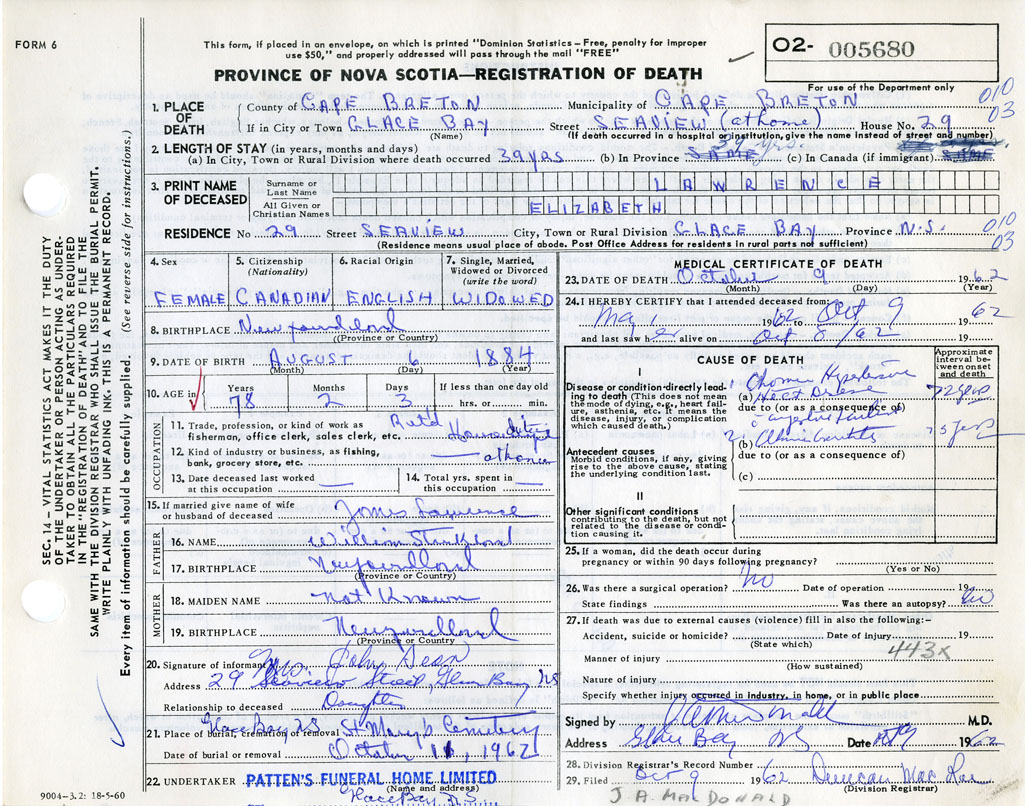 FORM 6
This form, if placed in an envelope, on which is printed "Dominion Statistics - Free, penalty for improper
use $50," and properly addressed will pass through the mail "FREE"
O2- 005680
PROVINCE OF NOVA SCOTIA—REGISTRATION OF DEATH
For use of the Department only
010
03
1. PLACE OF DEATH
County of CAPE BRETON Municipality of CAPE BRETON
If in City or Town GLACE BAY Street SEAVIEW (at home) House No. 29
(Name) (If death occurred in a hospital or institution, give the name instead of street and number)
2. LENGTH OF STAY (in years, months and days) 39 yrs.
(a) In City, Town or Rural Division where death occurred 39 YRS (b) In Province SAME (c) In Canada (if immigrant) SAME
3. PRINT NAME OF DECEASED
Surname or Last Name LAWRENCE
All Given or Christian Names ELIZABETH
RESIDENCE No 29 Street SEAVIEW City, Town or Rural Division GLACE BAY Province N.S.
010
03
(Residence means usual place of abode. Post Office Address for residents in rural parts not sufficient)
4. Sex FEMALE
5. Citizenship (Nationality) CANADIAN
6. Racial Origin ENGLISH
7. Single, Married, Widowed or Divorced (write the word) WIDOWED
8. BIRTHPLACE Newfoundland
(Province or Country)
9. DATE OF BIRTH AUGUST 6 1884
(Month) (Day) (Year)
10. AGE in Years 78 Months 2 Days 3 If less than one day old hrs. or min.
OCCUPATION
11. Trade, profession, or kind of work as
fisherman, office clerk, sales clerk, etc.
12. Kind of industry or business, as fishing,
bank, grocery store, etc. at home
13. Date deceased last worked at this occupation
14. Total yrs. spent in this occupation
15. If married give name of wife
or husband of deceased James Lawrence
FATHER
16. NAME William
17. BIRTHPLACE Newfoundland
(Province or Country)
MOTHER
18. MAIDEN NAME Not Known
19. BIRTHPLACE Newfoundland
(Province or Country)
20. Signature of informant Mrs. John
Address 29 Seaview Street, Glace Bay NS
Relationship to deceased Daughter
Glace Bay NS
21. Place of burial, cremation or removal St Mary's Cemetery
Date of burial or removal October 11, 1962
22. UNDERTAKER PATTEN'S FUNERAL HOME LIMITED
(Name and address)
Glace Bay N.S.
9004-3.2: 18-5-60
MEDICAL CERTIFICATE OF DEATH
23. DATE OF DEATH October 9 1962
(Month) (Day) (Year)
24. I HEREBY CERTIFY that I attended deceased from:
1962 to Oct 9 1962
and last saw h er alive on Oct 8/62 19
CAUSE OF DEATH
Approximate interval between onset and death
I
Disease or condition directly leading to death (This does not mean the mode of dying, e.g., heart failure, asthenia, etc. It means the disease, injury, or complication which caused death.)
(a) Heart Disease
due to (or as a consequence of)
(b)
due to (or as a consequence of)
Antecedent causes
Morbid conditions, if any, giving rise to the above cause, stating the underlying condition last.
(c)
II
Other significant conditions
contributing to the death, but not related to the disease or condition causing it.
25. If a woman, did the death occur during
pregnancy or within 90 days following pregnancy?
(Yes or No)
26. Was there a surgical operation? No Date of operation 19
State findings Was there an autopsy? No
27. If death was due to external causes (violence) fill in also the following:-
Accident, suicide or homicide? Date of injury 19
(State which)
443X
Manner of injury
(How sustained)
Nature of injury
Specify whether injury occurred in industry, in home, or in public place
Signed by M.D.
Address Glace Bay NS Date Oct 9 1962
28. Division Registrar's Record Number
29. Filed Oct 9 1962 Duncan
(Division Registrar)
J. A. MACDONALD
SEC. 14 – VITAL STATISTICS ACT MAKES IT THE DUTY
OF THE UNDERTAKER OR PERSON ACTING AS UNDER-
TAKER "TO OBTAIN ALL THE PARTICULARS REQUIRED
IN THE "REGISTRATION OF DEATH" AND TO FILE THE
SAME WITH THE DIVISION REGISTRAR WHO SHALL ISSUE THE BURIAL PERMIT.
WRITE PLAINLY WITH UNFADING INK. THIS IS A PERMANENT RECORD.
Every item of information should be carefully supplied. (See reverse side for instructions.)